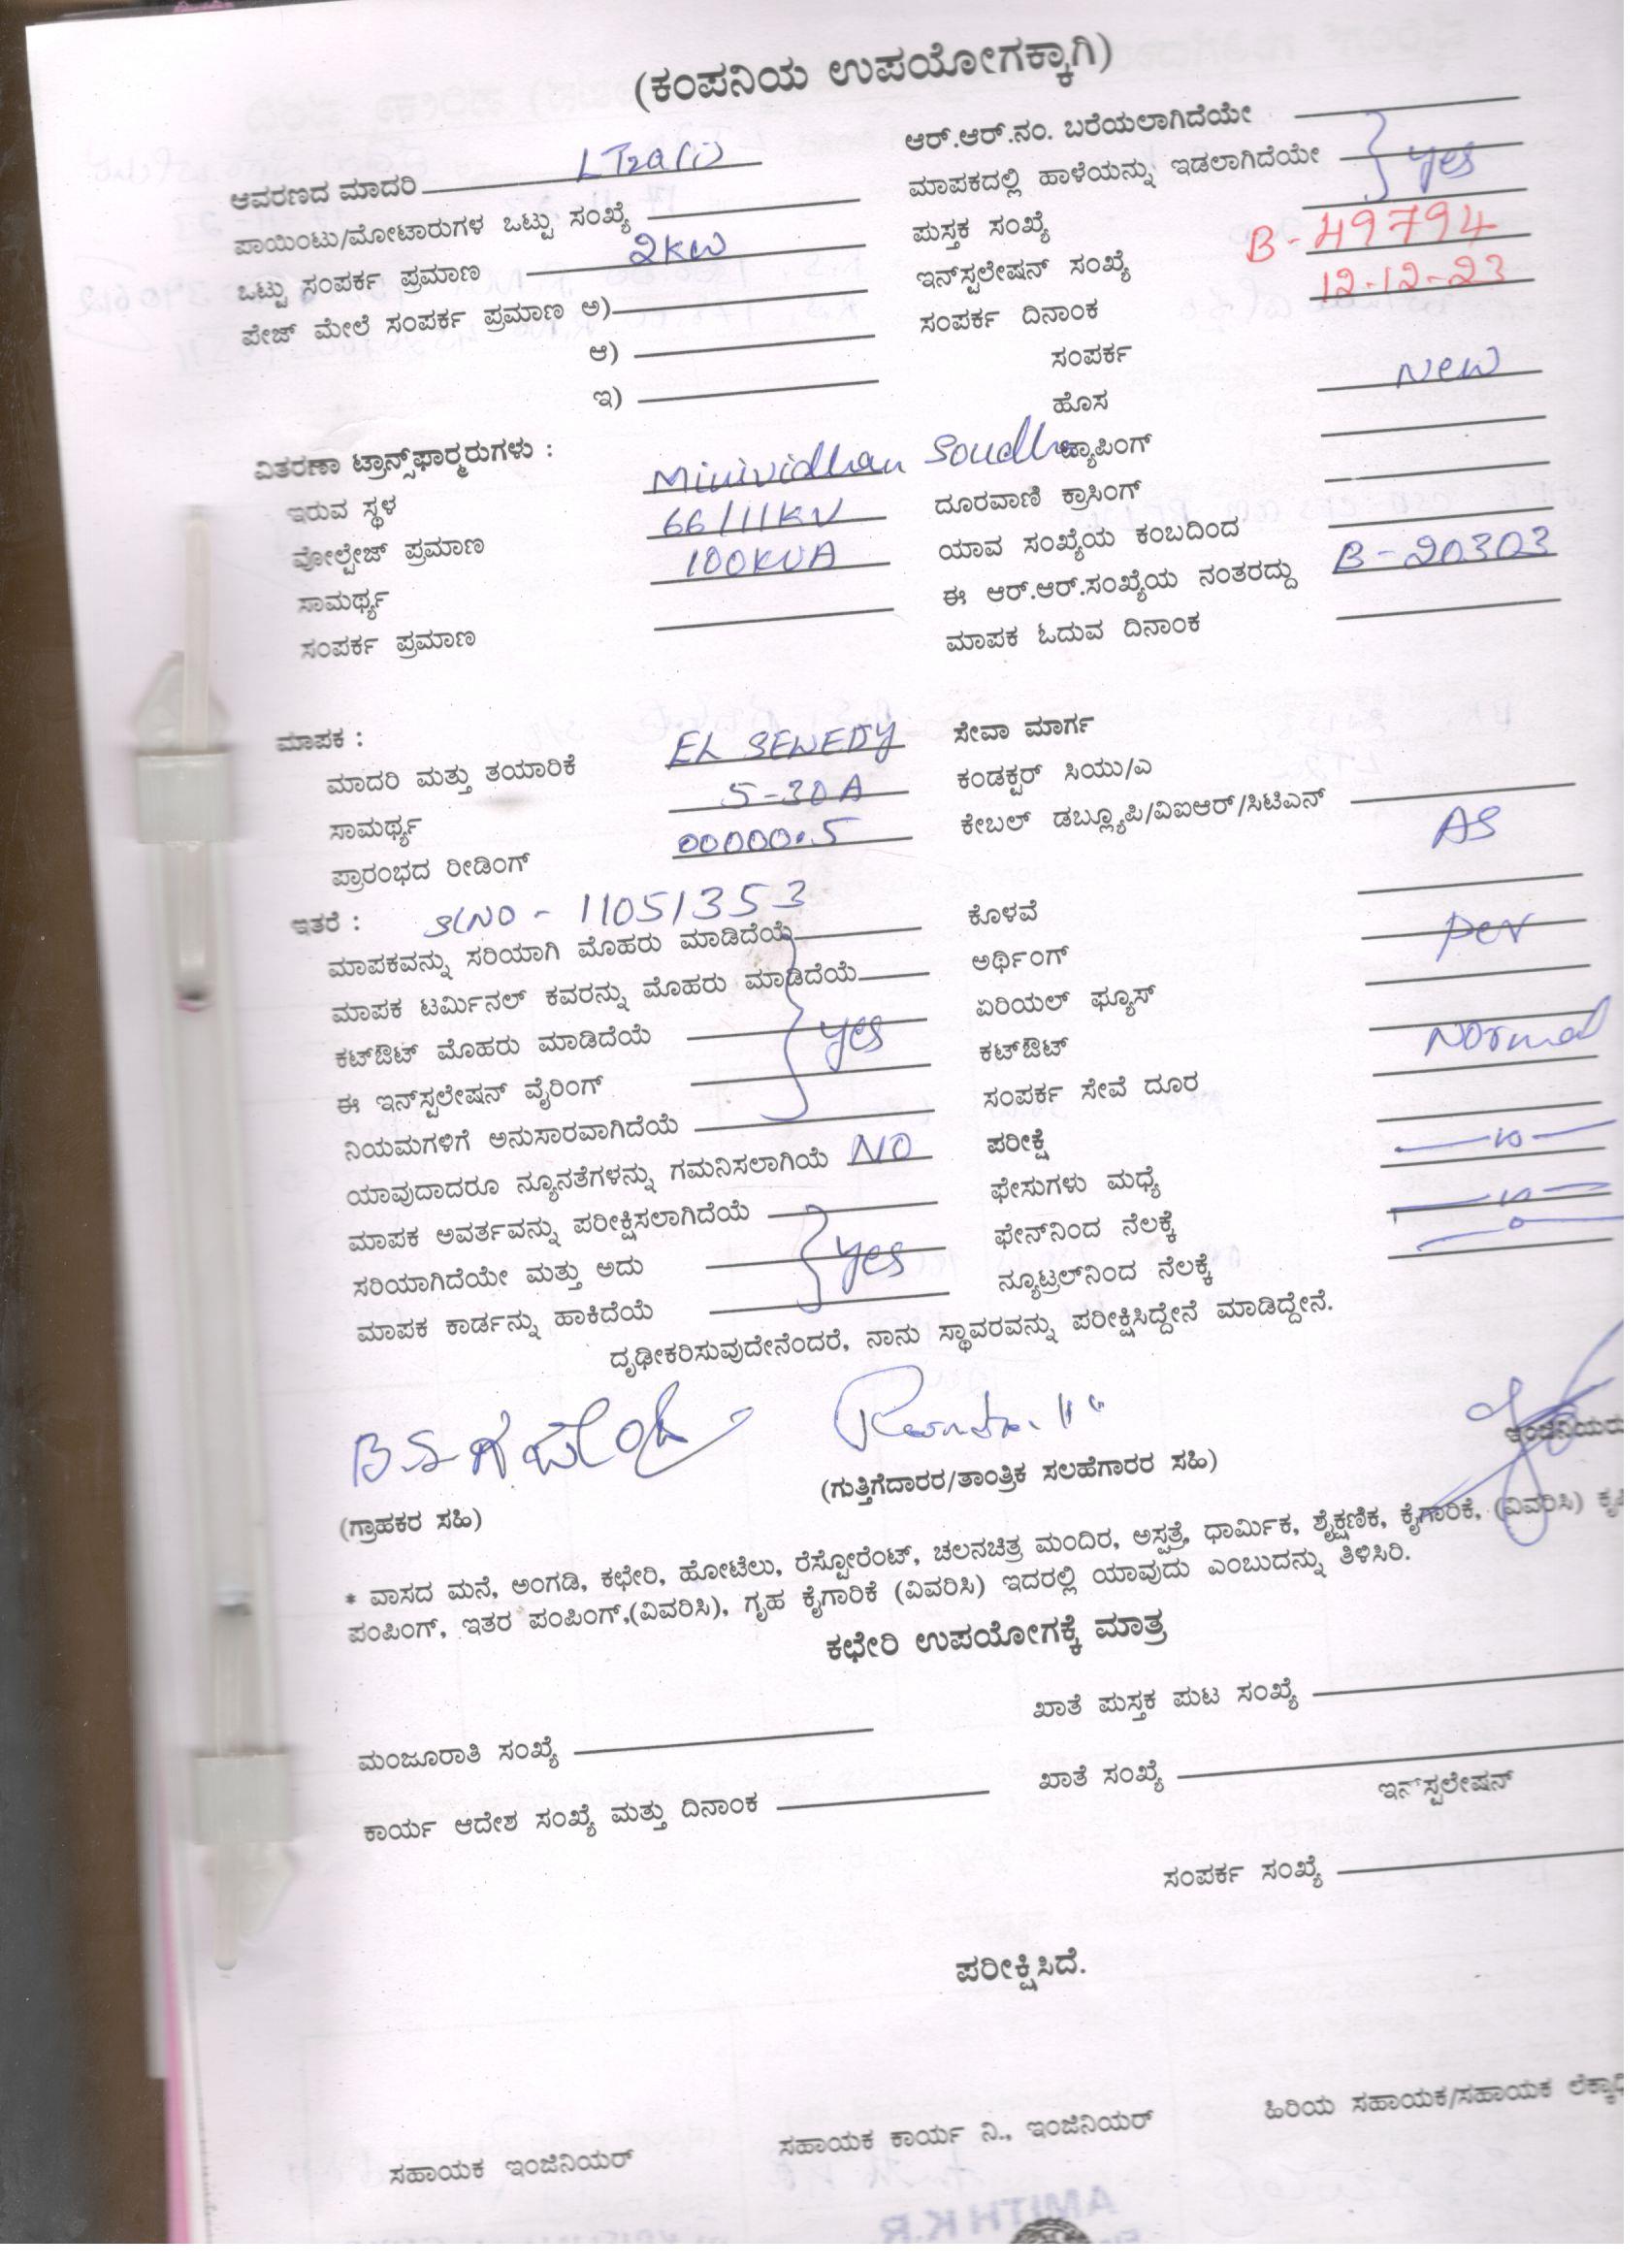 (ಕಂಪನಿಯ ಉಪಯೋಗಕ್ಕಾಗಿ)
ಆವರಣದ ಮಾದರಿ LT2a(i)
ಪಾಯಿಂಟು/ಮೋಟಾರುಗಳ ಒಟ್ಟು ಸಂಖ್ಯೆ
ಒಟ್ಟು ಸಂಪರ್ಕ ಪ್ರಮಾಣ 2KW
ಪೇಜ್ ಮೇಲೆ ಸಂಪರ್ಕ ಪ್ರಮಾಣ ಅ)
ಆ)
ಇ)
ಆರ್.ಆರ್.ನಂ. ಬರೆಯಲಾಗಿದೆಯೇ
ಮಾಪಕದಲ್ಲಿ ಹಾಳೆಯನ್ನು ಇಡಲಾಗಿದೆಯೇ } yes
ಪುಸ್ತಕ ಸಂಖ್ಯೆ
ಇನ್‌ಸ್ಟಲೇಷನ್ ಸಂಖ್ಯೆ B-49794
ಸಂಪರ್ಕ ದಿನಾಂಕ 12-12-23
ಸಂಪರ್ಕ
ಹೊಸ New
ಟ್ಯಾಪಿಂಗ್
ದೂರವಾಣಿ ಕ್ರಾಸಿಂಗ್
ಯಾವ ಸಂಖ್ಯೆಯ ಕಂಬದಿಂದ
ಈ ಆರ್.ಆರ್.ಸಂಖ್ಯೆಯ ನಂತರದ್ದು B-20303
ಮಾಪಕ ಓದುವ ದಿನಾಂಕ
ವಿತರಣಾ ಟ್ರಾನ್ಸ್‌ಫಾರ್‍ಮರುಗಳು :
ಇರುವ ಸ್ಥಳ Minividhan Soudha
ವೋಲ್ಟೇಜ್ ಪ್ರಮಾಣ 66/11KV
ಸಾಮರ್ಥ್ಯ 100KVA
ಸಂಪರ್ಕ ಪ್ರಮಾಣ
ಮಾಪಕ :
ಮಾದರಿ ಮತ್ತು ತಯಾರಿಕೆ EL SEWEDY
ಸಾಮರ್ಥ್ಯ 5-30A
ಪ್ರಾರಂಭದ ರೀಡಿಂಗ್ 00000.5
ಸೇವಾ ಮಾರ್ಗ
ಕಂಡಕ್ಟರ್ ಸಿಯು/ಎ
ಕೇಬಲ್ ಡಬ್ಲ್ಯೂಪಿ/ವಿಐಆರ್/ಸಿಟಿಎನ್
AS
ಇತರೆ : SLNO - 11051353
ಮಾಪಕವನ್ನು ಸರಿಯಾಗಿ ಮೊಹರು ಮಾಡಿದೆಯೆ
ಮಾಪಕ ಟರ್ಮಿನಲ್ ಕವರನ್ನು ಮೊಹರು ಮಾಡಿದೆಯೆ
ಕಟ್‌ಔಟ್ ಮೊಹರು ಮಾಡಿದೆಯೆ } yes
ಈ ಇನ್‌ಸ್ಟಲೇಷನ್ ವೈರಿಂಗ್
ನಿಯಮಗಳಿಗೆ ಅನುಸಾರವಾಗಿದೆಯೆ
ಯಾವುದಾದರೂ ನ್ಯೂನತೆಗಳನ್ನು ಗಮನಿಸಲಾಗಿಯೆ NO
ಮಾಪಕ ಅವರ್ತವನ್ನು ಪರೀಕ್ಷಿಸಲಾಗಿದೆಯೆ
ಸರಿಯಾಗಿದೆಯೇ ಮತ್ತು ಅದು } yes
ಮಾಪಕ ಕಾರ್ಡನ್ನು ಹಾಕಿದೆಯೆ
ಕೊಳವೆ
ಅರ್ಥಿಂಗ್ per
ಏರಿಯಲ್ ಫ್ಯೂಸ್
ಕಟ್‌ಔಟ್ Normal
ಸಂಪರ್ಕ ಸೇವೆ ದೂರ
ಪರೀಕ್ಷೆ
ಫೇಸುಗಳು ಮಧ್ಯೆ
ಫೇಸ್‌ನಿಂದ ನೆಲಕ್ಕೆ
ನ್ಯೂಟ್ರಲ್‌ನಿಂದ ನೆಲಕ್ಕೆ
ದೃಢೀಕರಿಸುವುದೇನೆಂದರೆ, ನಾನು ಸ್ಥಾವರವನ್ನು ಪರೀಕ್ಷಿಸಿದ್ದೇನೆ ಮಾಡಿದ್ದೇನೆ.
(ಗ್ರಾಹಕರ ಸಹಿ)
(ಗುತ್ತಿಗೆದಾರರ/ತಾಂತ್ರಿಕ ಸಲಹೆಗಾರರ ಸಹಿ)
* ವಾಸದ ಮನೆ, ಅಂಗಡಿ, ಕಛೇರಿ, ಹೋಟೆಲು, ರೆಸ್ಟೋರೆಂಟ್, ಚಲನಚಿತ್ರ ಮಂದಿರ, ಅಸ್ಪತ್ರೆ, ಧಾರ್ಮಿಕ, ಶೈಕ್ಷಣಿಕ, ಕೈಗಾರಿಕೆ, (ವಿವರಿಸಿ)
ಪಂಪಿಂಗ್, ಇತರ ಪಂಪಿಂಗ್,(ವಿವರಿಸಿ), ಗೃಹ ಕೈಗಾರಿಕೆ (ವಿವರಿಸಿ) ಇದರಲ್ಲಿ ಯಾವುದು ಎಂಬುದನ್ನು ತಿಳಿಸಿರಿ.
ಕಛೇರಿ ಉಪಯೋಗಕ್ಕೆ ಮಾತ್ರ
ಖಾತೆ ಪುಸ್ತಕ ಪುಟ ಸಂಖ್ಯೆ
ಮಂಜೂರಾತಿ ಸಂಖ್ಯೆ
ಖಾತೆ ಸಂಖ್ಯೆ
ಇನ್‌ಸ್ಟಲೇಷನ್
ಕಾರ್ಯ ಆದೇಶ ಸಂಖ್ಯೆ ಮತ್ತು ದಿನಾಂಕ
ಸಂಪರ್ಕ ಸಂಖ್ಯೆ
ಪರೀಕ್ಷಿಸಿದೆ.
ಸಹಾಯಕ ಇಂಜಿನಿಯರ್
ಸಹಾಯಕ ಕಾರ್ಯ ನಿ., ಇಂಜಿನಿಯರ್
ಹಿರಿಯ ಸಹಾಯಕ/ಸಹಾಯಕ